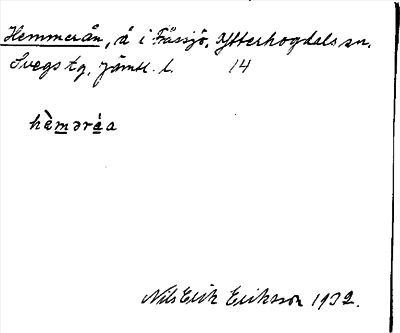 Hemmerån, å i Fåssjö, Ytterhogdals sn.
Svegs tg, Jämtl. l. 14
hèməréa
Nils Erik Eriksson 1932.